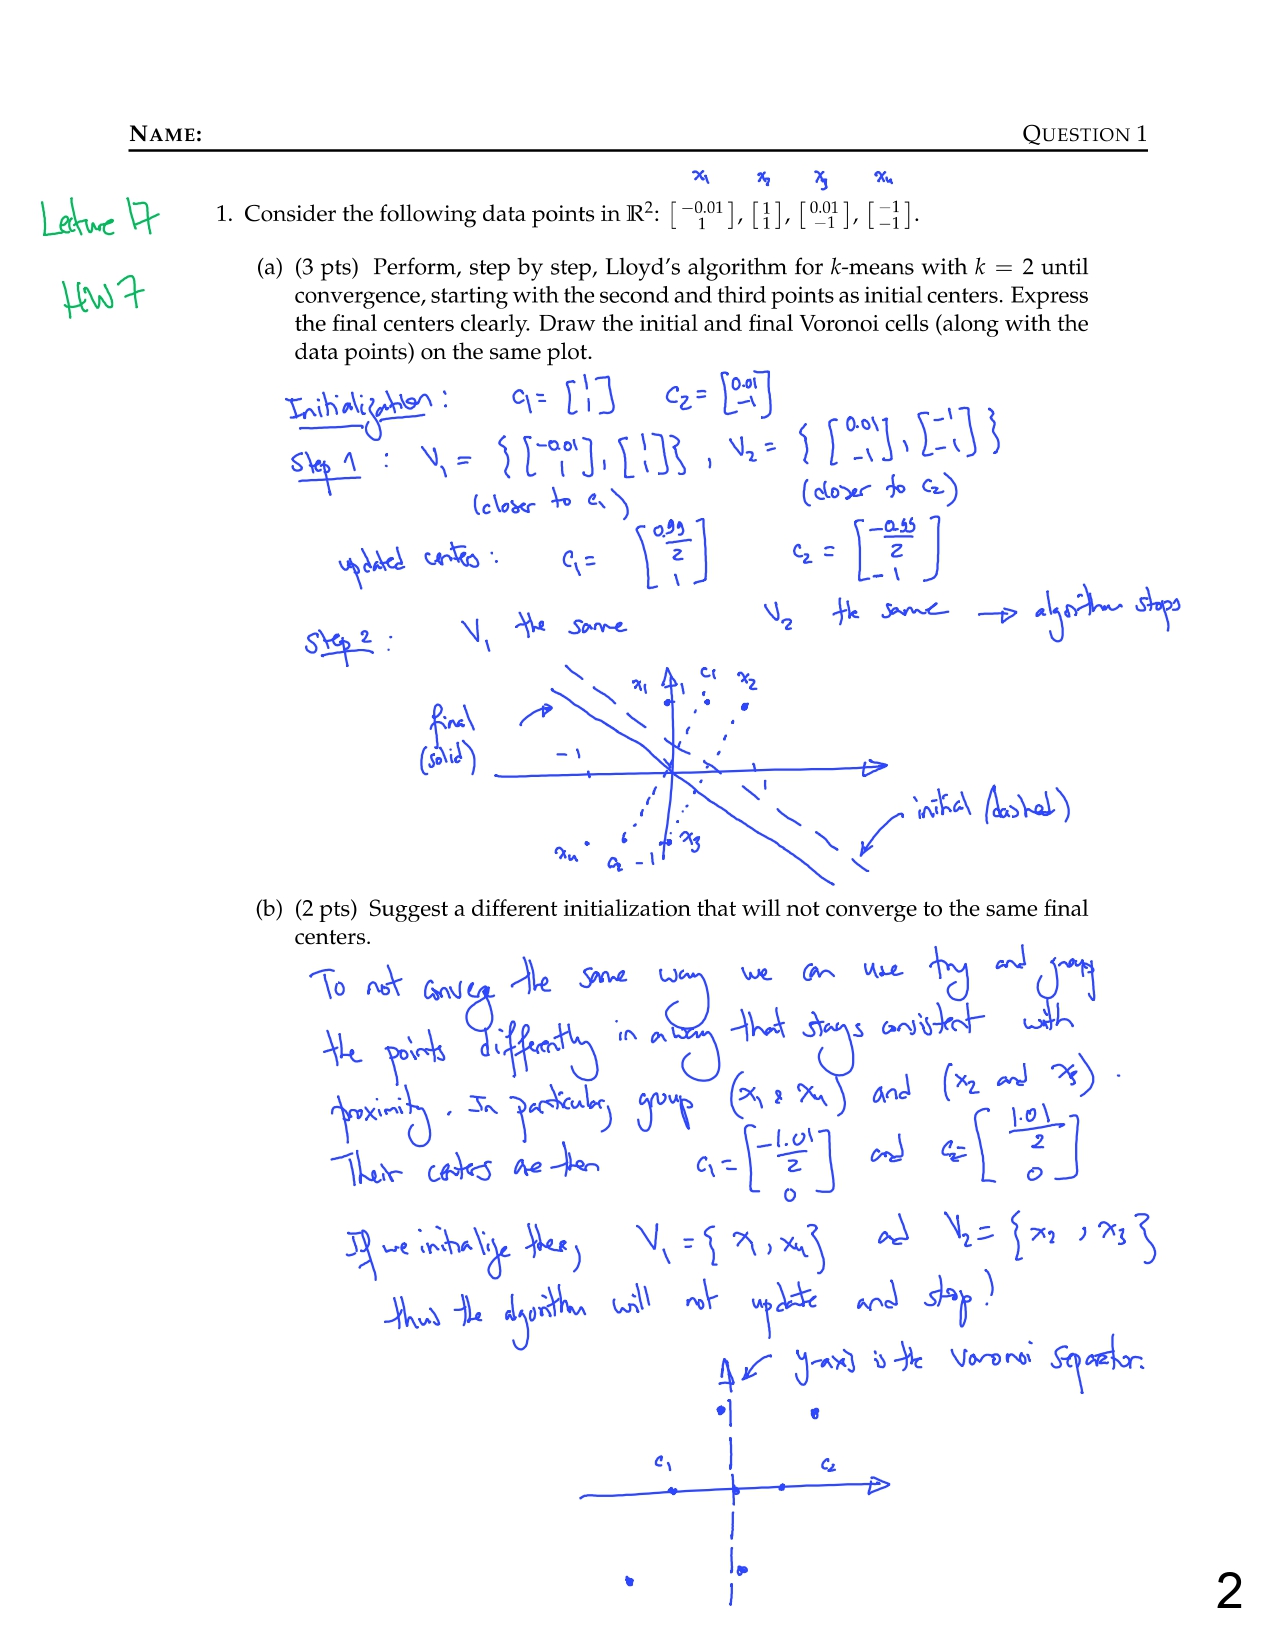 NAME: QUESTION 1
x1 x2 x3 x4
Lecture 17
1. Consider the following data points in ℝ²: [−0.01 1], [1 1], [0.01 −1], [−1 −1].
HW7
(a) (3 pts) Perform, step by step, Lloyd's algorithm for k-means with k = 2 until
convergence, starting with the second and third points as initial centers. Express
the final centers clearly. Draw the initial and final Voronoi cells (along with the
data points) on the same plot.
Initialization: c1 = [1 1] c2 = [0.01 −1]
Step 1 : V1 = {[-0.01 1], [1 1]}, V2 = {[0.01 -1], [-1 -1]}
(closer to c1) (closer to c2)
updated centers: c1 = [0.99/2 1] c2 = [-0.99/2 -1]
Step 2 : V1 the same V2 the same → algorithm stops
x1 1 c1 x2
final
(solid)
-1 1
initial (dashed)
x4 c2 -1 x3
(b) (2 pts) Suggest a different initialization that will not converge to the same final
centers.
To not converge the same way we can use try and group
the points differently in a way that stays consistent with
proximity. In particular, group (x1 & x4) and (x2 and x3).
Their centers are then c1 = [-1.01/2 0] and c2 = [1.01/2 0]
If we initialize there, V1 = {x1, x4} and V2 = {x2, x3}
thus the algorithm will not update and stop!
y-axis is the Voronoi separator.
c1 c2
2